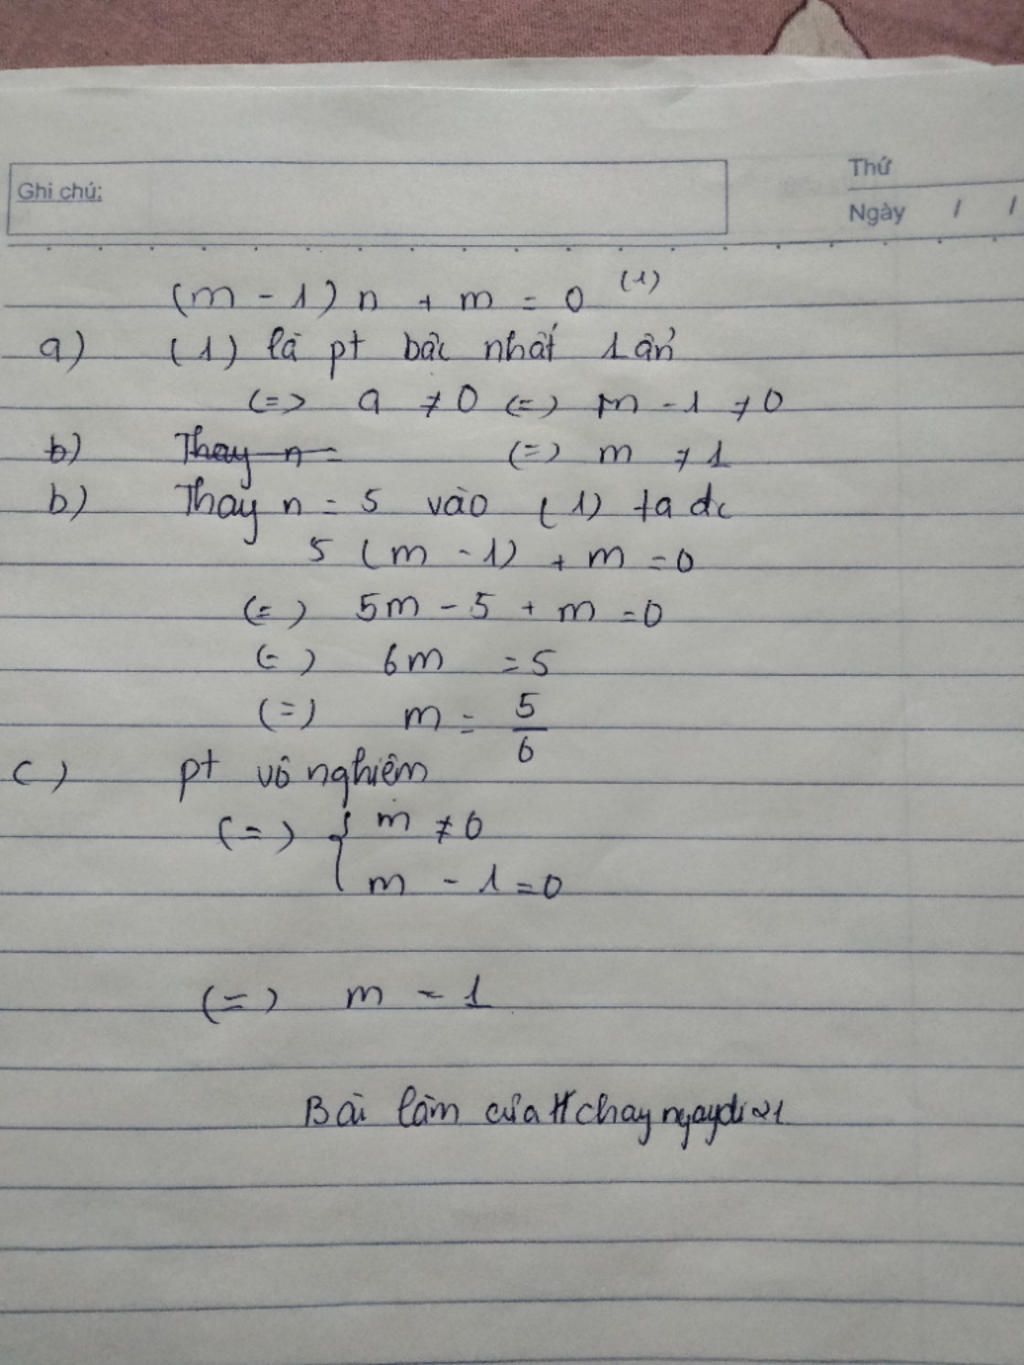 Ghi chú:
Thứ
Ngày / /
(m - 1) n + m = 0 (1)
a) (1) là pt bậc nhất 1 ẩn
(=) a ≠ 0 (=) m - 1 ≠ 0
b) Thay n = (=) m ≠ 1
b) Thay n = 5 vào (1) ta đc
5 (m - 1) + m = 0
(=) 5m - 5 + m = 0
(=) 6m = 5
(=) m = 5/6
c) pt vô nghiệm
(=) { m ≠ 0
m - 1 = 0
(=) m = 1
Bài làm của # chayngaydi21